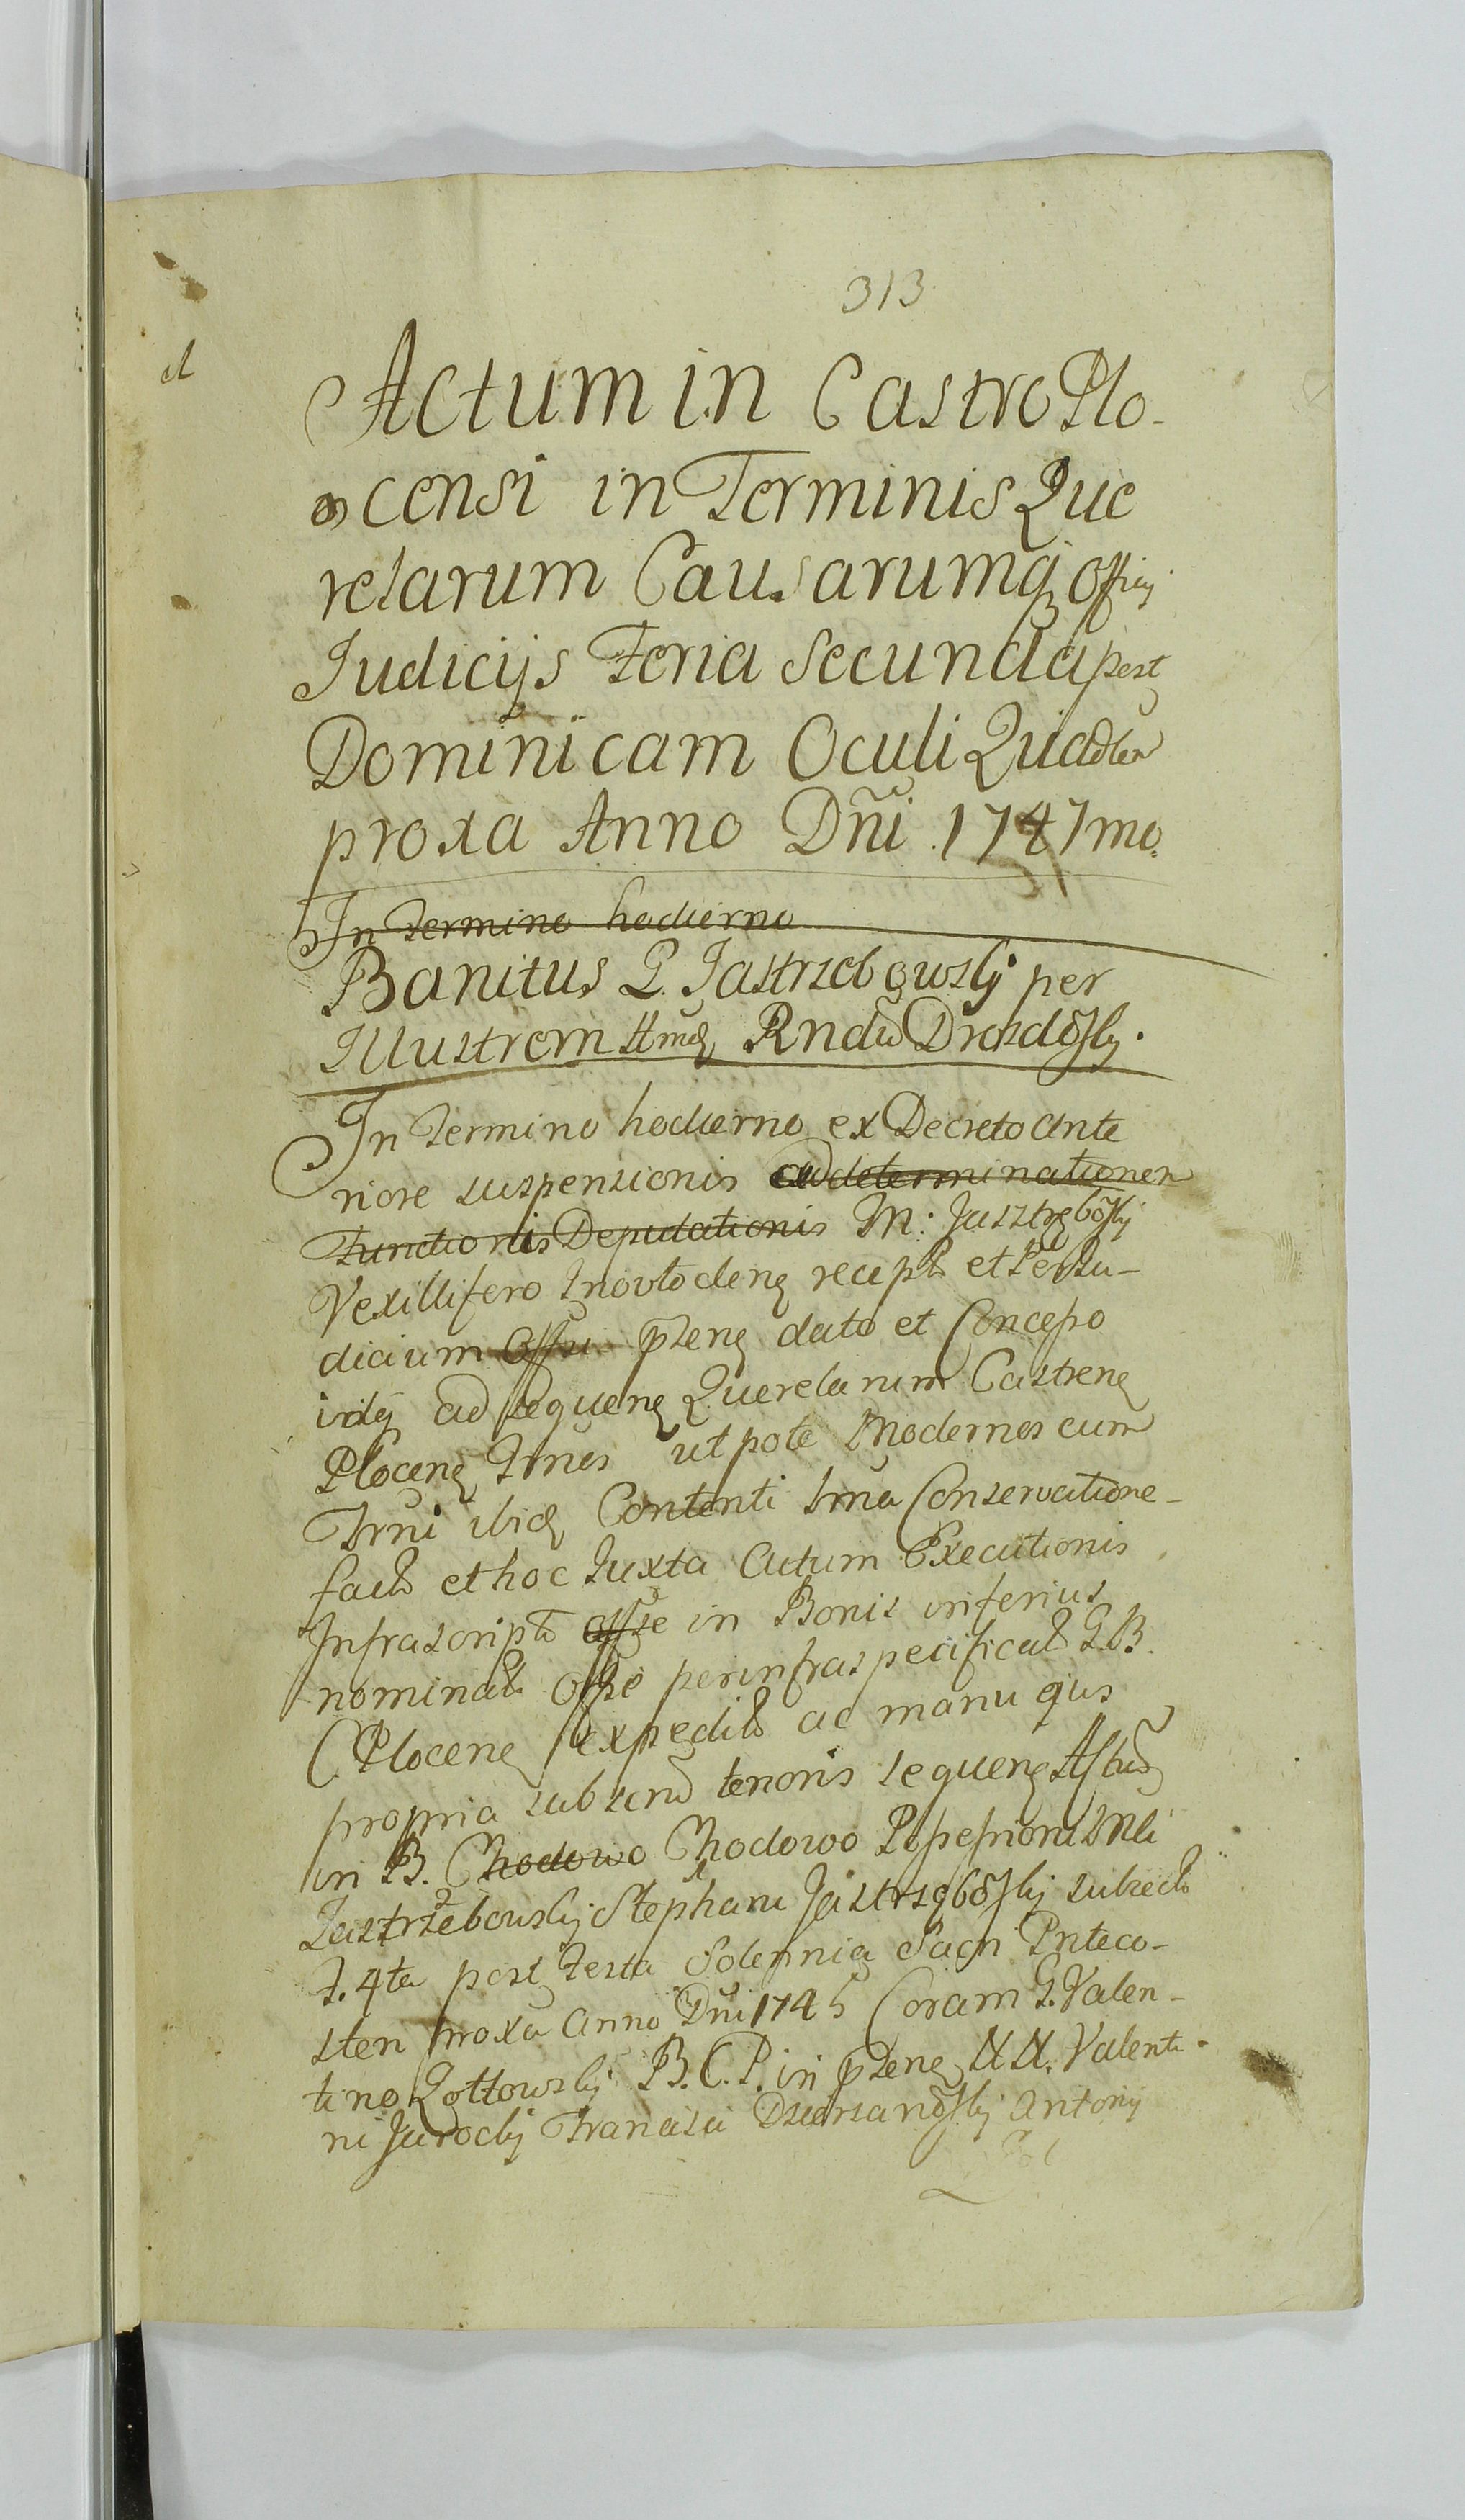 313
Actum in Castro Plo-
censi in Terminis Que
relarum Causarumq Offiy
Judicijs Feria Secunda post
Dominicam Oculi Quadlem
proxa Anno Dñi 1747mo.
In Termino hodierno
Banitus G. Jastrzebowsky per
Illustrem Rndũ Drozdõsky.
In Termino hodierno ex Decreto Ante
riore suspensionis ad determinationem
Functionis Deputationis M: Jastrzębõsky
Vexillifero recepta et Per Ju-
dicium Offii pñzenę dato et Concesso
ad sequenę Querelarum Castrenę
Plocenę Trnos utpote Modernos cum
Trni ibidę Contenti Trna Conservatione
facta et hoc Juxta Actum Executionis
Infrascripta in Bonis inferius
nominatis per infraspecificatũ G. B.
Plocenę expeditũ ac manu ejus
propria tenoris sequenę
in B. Chodowo Chodowo Possessionis
Jastrzebowsky Stephani Jastrzębõsky
F. 4ta post Festa Solennia Sacri Penteco-
sten proxa Anno Dñi 1745 Coram G. Valen-
tino Zottowsky B. C. P. in pñzenę NN. Valenti
ni Jarocky Francisci Antonij